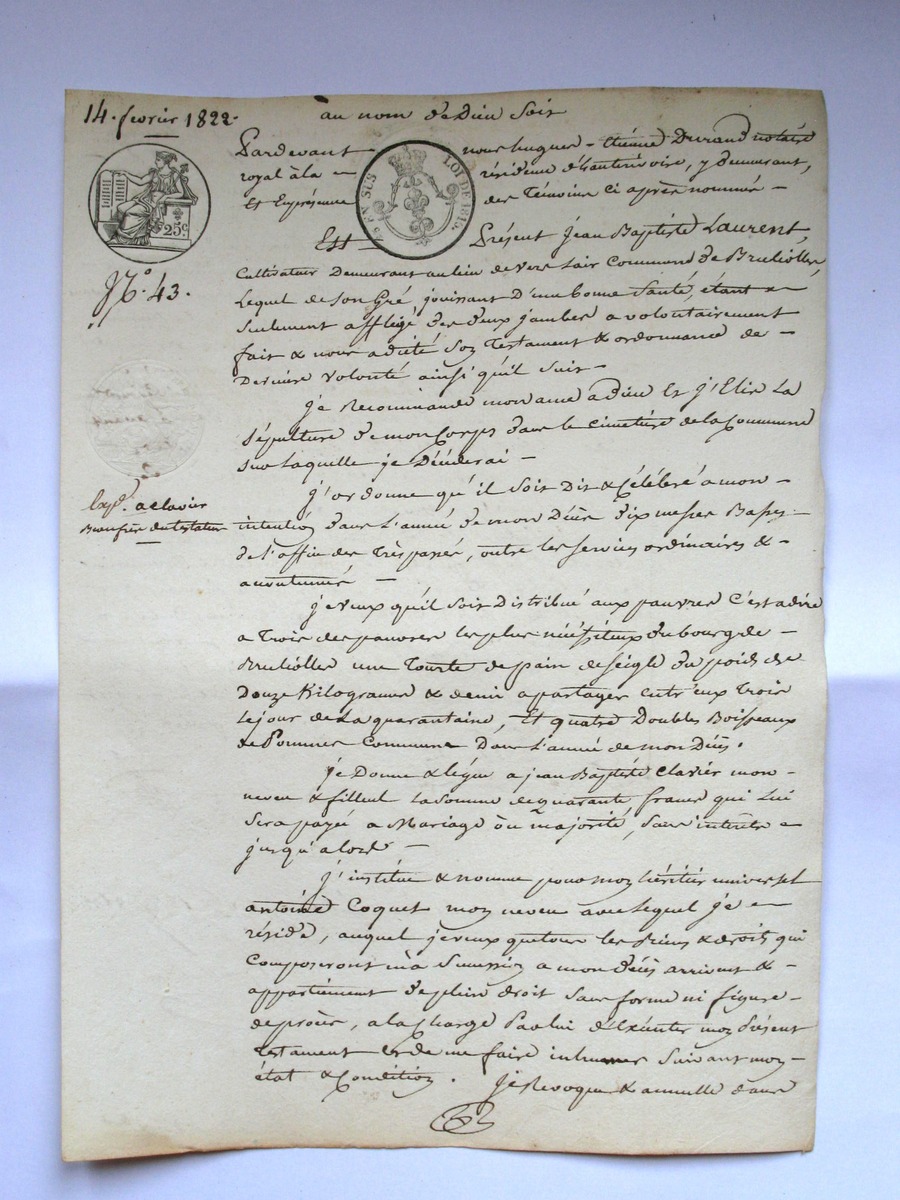 14. fevrier 1822.
au nom de Dieu Soit
Pardevant nous hugues-étienne Durand notaire
royal à la résidence d'hauterivoire, y demeurant,
Et En présence des Témoins ci après nommés -
25 EN SUS LOI DE 1815.
25 c.
Est Présent Jean Baptiste Laurent,
N.º 43.
Cultivateur Demeurant au lieu de vers lair Commune de Bruliolles,
Lequel de son Gré, jouissant d'une bonne Santé, étant
Seulement affligé des deux jambes a volontairement
fait & nous a dicté Son Testament & ordonnance de
Derniere volonté ainsi qu'il suit -
je Recommande mon ame a dieu Et j'Elis La
Sépulture de mon Corps dans le cimetière de la Commune
sur laquelle je Décéderai -
j'ordonne qu'il soit Dit & Célébré à mon
intention dans L'année de mon Décès dix messes Basses
de l'office des Trépassés, outre les services ordinaires &
acoutumés -
Exp.é a clavier
Beaufrere du testateur
je veux qu'il soit Distribué aux pauvres c'est adire
a Trois des pauvres les plus nécessiteux du bourg de
Bruliolles une Tourte de pain de seigle du poids de
Douze Kilogrames & demi a partager entr'eux Trois
le jour de La quarantaine, Et quatre Doubles Boisseaux
de Pommes Commune Dans L'année de mon Décès.
je Donne & légue a jean Baptiste Clavier mon
neveu & filleul La somme de quarante francs qui Lui
sera payée a Mariage où majorité, Sans intérêts
jusqu'alors -
j'institue & nomme pour mon héritier universel
antoine Coquet mon neveu avec lequel je
réside, auquel je veux que tous les Biens & droits qui
Composeront ma Succession a mon décès arrivent &
appartiennent de plein droit Sans forme ni figure
de procès, a la Charge Par lui d'Exécuter mon présent
Testament Et de me faire inhumer Suivant mon
état & Condition. Je Revoque & annulle dans